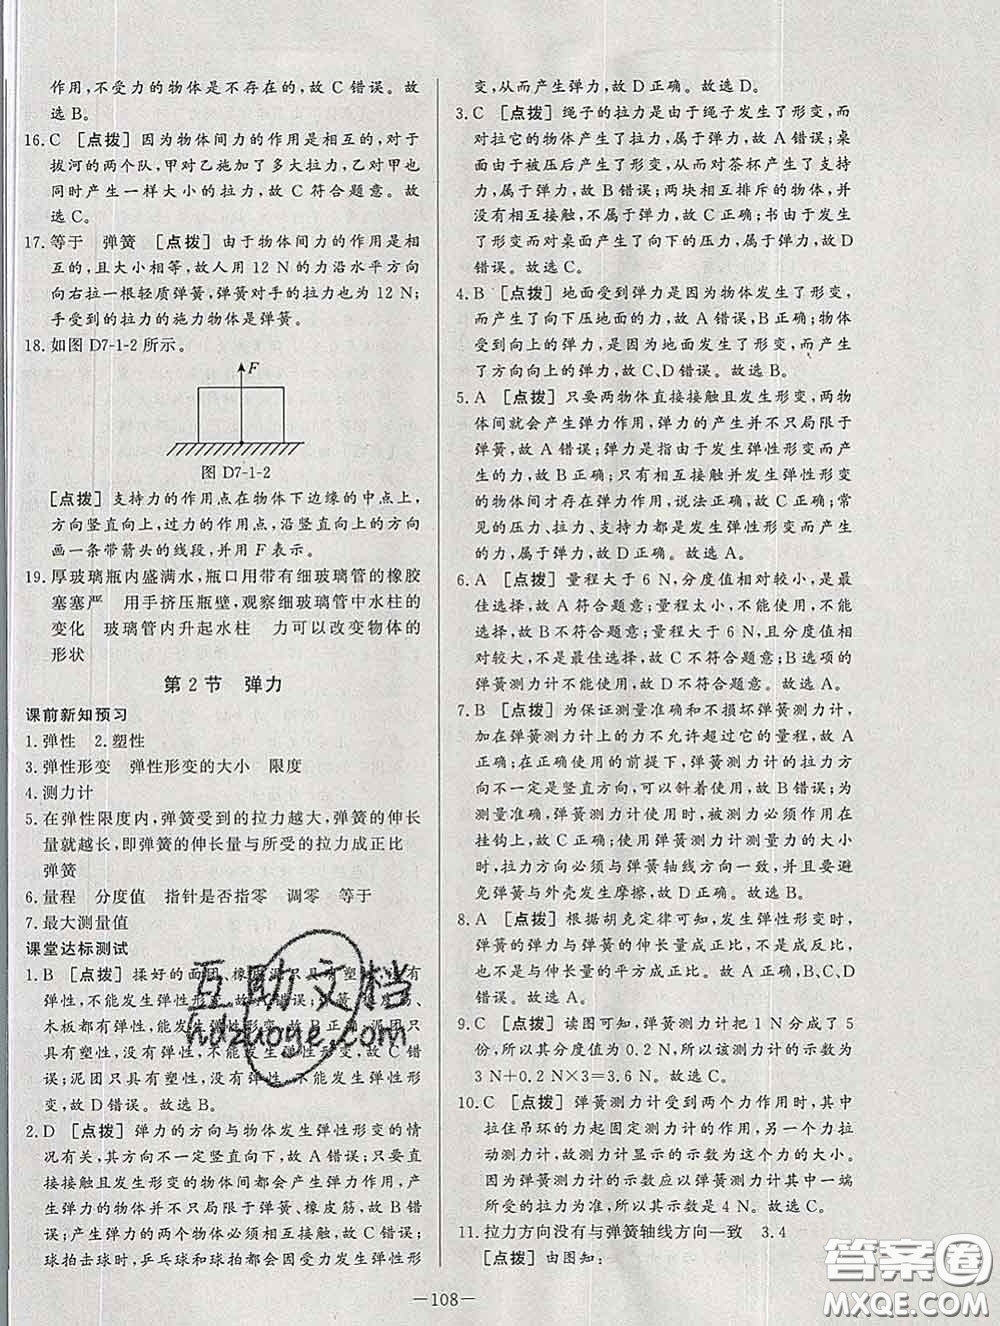 作用,不受力的物体是不存在的,故 C 错误。故
选 B。
16. C [点拨] 因为物体间力的作用是相互的,对于
拔河的两个队,甲对乙施加了多大拉力,乙对甲也
同时产生一样大小的拉力,故 C 符合题意。故
选 C。
17. 等于 弹簧 [点拨] 由于物体间力的作用是相
互的,且大小相等,故人用 12 N 的力沿水平方向
向右拉一根轻质弹簧,弹簧对手的拉力也为 12 N;
手受到的拉力的施力物体是弹簧。
18. 如图 D7-1-2 所示。
F
图 D7-1-2
[点拨] 支持力的作用点在物体下边缘的中点上,
方向竖直向上,过力的作用点,沿竖直向上的方向
画一条带箭头的线段,并用 F 表示。
19. 厚玻璃瓶内盛满水,瓶口用带有细玻璃管的橡胶
塞塞严 用手挤压瓶壁,观察细玻璃管中水柱的
变化 玻璃管内升起水柱 力可以改变物体的
形状
第 2 节 弹力
课前新知预习
1. 弹性 2. 塑性
3. 弹性形变 弹性形变的大小 限度
4. 测力计
5. 在弹性限度内,弹簧受到的拉力越大,弹簧的伸长
量就越长,即弹簧的伸长量与所受的拉力成正比
弹簧
6. 量程 分度值 指针是否指零 调零 等于
7. 最大测量值
课堂达标测试
1. B [点拨] 揉好的面团、橡皮泥只具有塑性,没有
弹性,不能发生弹性形变,故 A 错误;弹簧、
木板都有弹性,能发生弹性形变,故 B 正确;泥团只
具有塑性,没有弹性,不能发生弹性形变,故 C 错
误;泥团只具有塑性,没有弹性,不能发生弹性形
变,故 D 错误。故选 B。
2. D [点拨] 弹力的方向与物体发生弹性形变的情
况有关,其方向不一定竖直向下,故 A 错误;只要直
接接触且发生形变的物体间都会产生弹力作用,产
生弹力的物体并不只局限于弹簧、橡皮筋,故 B 错
误;产生弹力的两个物体必须相互接触,故 C 错误;
球拍击球时,乒乓球和球拍都会因受力发生弹性形
变,从而产生弹力,故 D 正确。故选 D。
3. C [点拨] 绳子的拉力是由于绳子发生了形变,而
对拉它的物体产生了拉力,属于弹力,故 A 错误;桌
面由于被压后产生了形变,从而对茶杯产生了支持
力,属于弹力,故 B 错误;两块相互排斥的物体,并
没有相互接触,不属于弹力,故 C 正确;书由于发生
形变而对桌面产生了向下的压力,属于弹力,故 D
错误。故选 C。
4. B [点拨] 地面受到弹力是因为物体发生了形变,
而产生了向下压地面的力,故 A 错误,B 正确;物体
受到向上的弹力,是因为地面发生了形变,而产生
了方向向上的弹力,故 C、D 错误。故选 B。
5. A [点拨] 只要两物体直接接触且发生形变,两物
体间就会产生弹力作用,弹力的产生并不只局限于
弹簧,故 A 错误;弹力是指由于发生弹性形变而产
生的力,故 B 正确;只有相互接触并发生弹性形变
的物体间才存在弹力作用,说法正确,故 C 正确;常
见的压力、拉力、支持力都是发生弹性形变而产生
的力,属于弹力,故 D 正确。故选 A。
6. A [点拨] 量程大于 6 N,分度值相对较小,是最
佳选择,故 A 符合题意;量程太小,不能使用,不能
选择,故 B 不符合题意;量程大于 6 N,且分度值相
对较大,不是最佳选择,故 C 不符合题意;B 选项的
弹簧测力计不能使用,故 D 不符合题意。故选 A。
7. B [点拨] 为保证测量准确和不损坏弹簧测力计,
加在弹簧测力计上的力不允许超过它的量程,故 A
正确;在正确使用的前提下,弹簧测力计的拉力方
向不一定是竖直方向,可以斜着使用,故 B 错误;为
测量准确,弹簧测力计使用时,被测力必须作用在
挂钩上,故 C 正确;使用弹簧测力计测量力的大小
时,拉力方向必须与弹簧轴线方向一致,并且要避
免弹簧与外壳发生摩擦,故 D 正确。故选 B。
8. A [点拨] 根据胡克定律可知,发生弹性形变时,
弹簧的弹力与弹簧的伸长量成正比,不是成反比,
也不是与伸长量的平方成正比,故 A 正确,B、C、D
错误。故选 A。
9. C [点拨] 读图可知,弹簧测力计把 1 N 分成了 5
份,所以其分度值为 0.2 N,所以该测力计的示数为
3 N+0.2 N×3=3.6 N。故选 C。
10. C [点拨] 弹簧测力计受到两个力作用时,其中
拉住吊环的力起固定测力计的作用,另一个力拉
动测力计,故测力计显示的示数为这个力的大小。
因为弹簧测力计的示数应以弹簧测力计其中一端
所受的拉力为准,所以示数为 4 N。故选 C。
11. 拉力方向没有与弹簧轴线方向一致 3.4
[点拨] 由图知:
—108—
互助文档
hdzuoye.com
答案圈
MXQE.COM